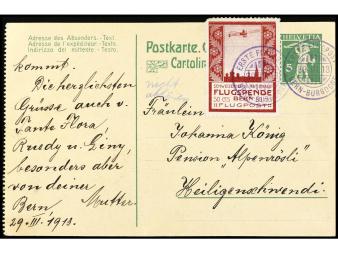 Adresse des Absenders.-Text.
Adresse de l'expéditeur.-Texte.
Indirizzo del mittente.-Testo.
kommt.
Die herzlichsten
Grüsse auch v.
Tante Flora
Ruedy u. Giny,
besonders aber
von deiner
Mutter.
Bern,
29. III. 1913.
Postkarte.
Cartolin
FLUGSPENDE
BERN
50 CTS
FLUGPOST
HELVETIA
5
Fräulein
Johanna König
Pension „Alpenrösli"
Heiligenschwendi.